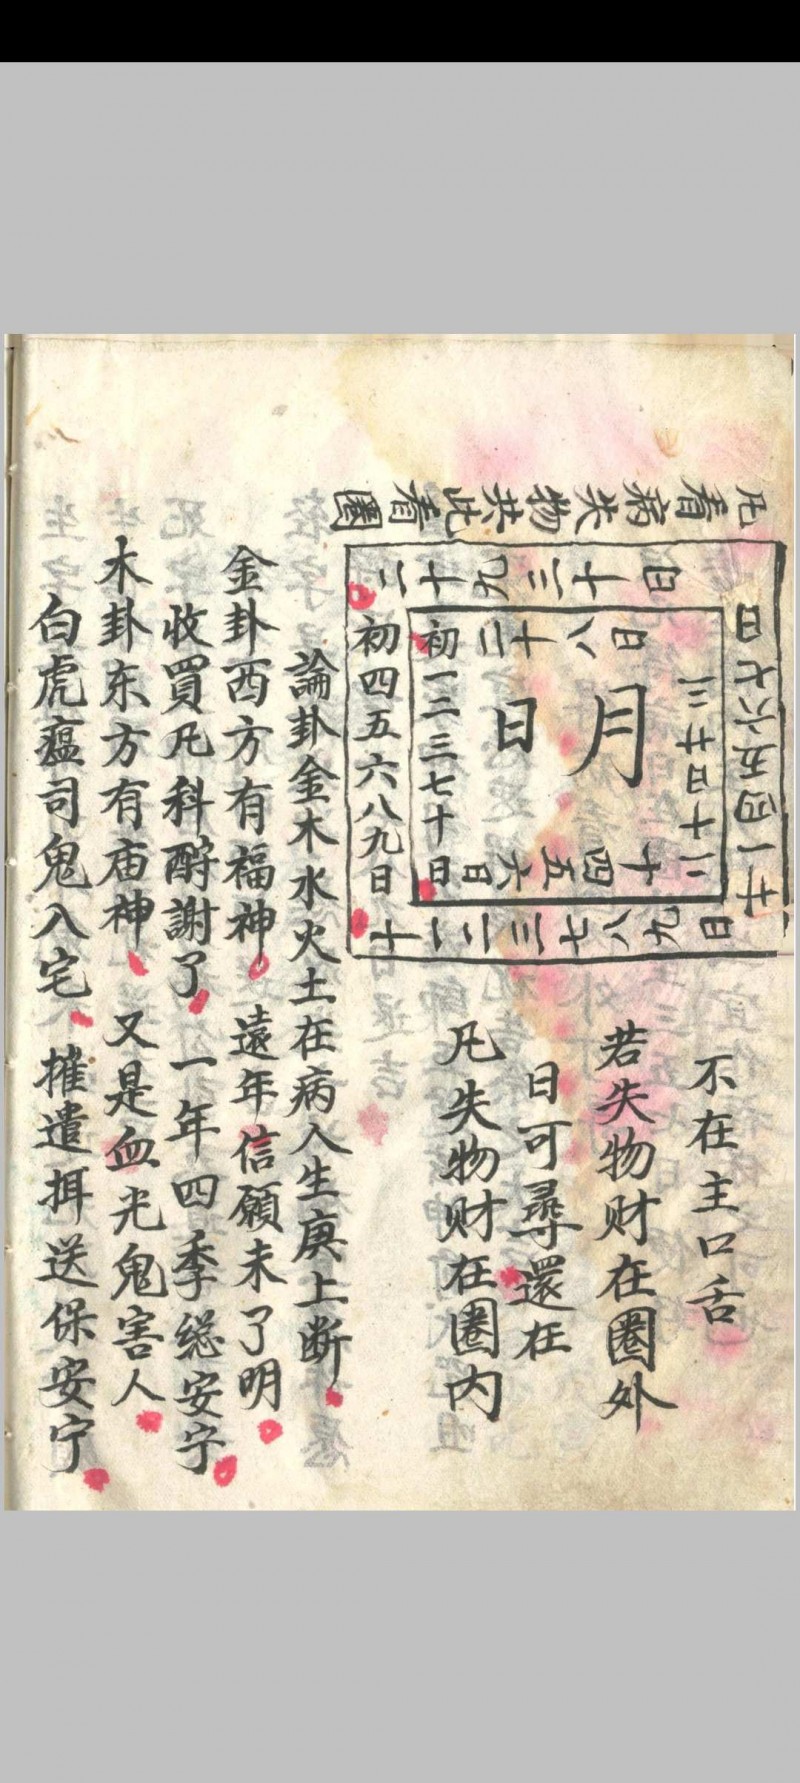 凡看病失物共此看圈
日十三九十二
四七六五四百一廿
初四五六八九日
日九八七三二一十
日八十二
初一二三七十日
十四五六日
月
日
不在主口舌
若失物财在圈外
日可尋還在
凡失物财在圈内
論卦金木水火土在病人生庚上断
金卦西方有福神 遠年信願未了明
收買凡科酧謝了 一年四季総安宁
木卦东方有庙神 又是血光鬼害人
白虎瘟司鬼入宅 推遣揖送保安宁